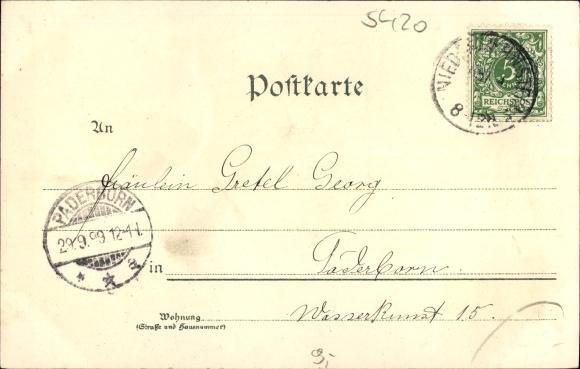 5420
5
REICHSPOST
Postkarte
An
Fräulein Gretel Georg
PADERBORN
29.9.99.12-1 N.
* * a
in
Paderborn.
Wohnung
(Straße und Hausnummer)
Wasserkunst 15.
9,-